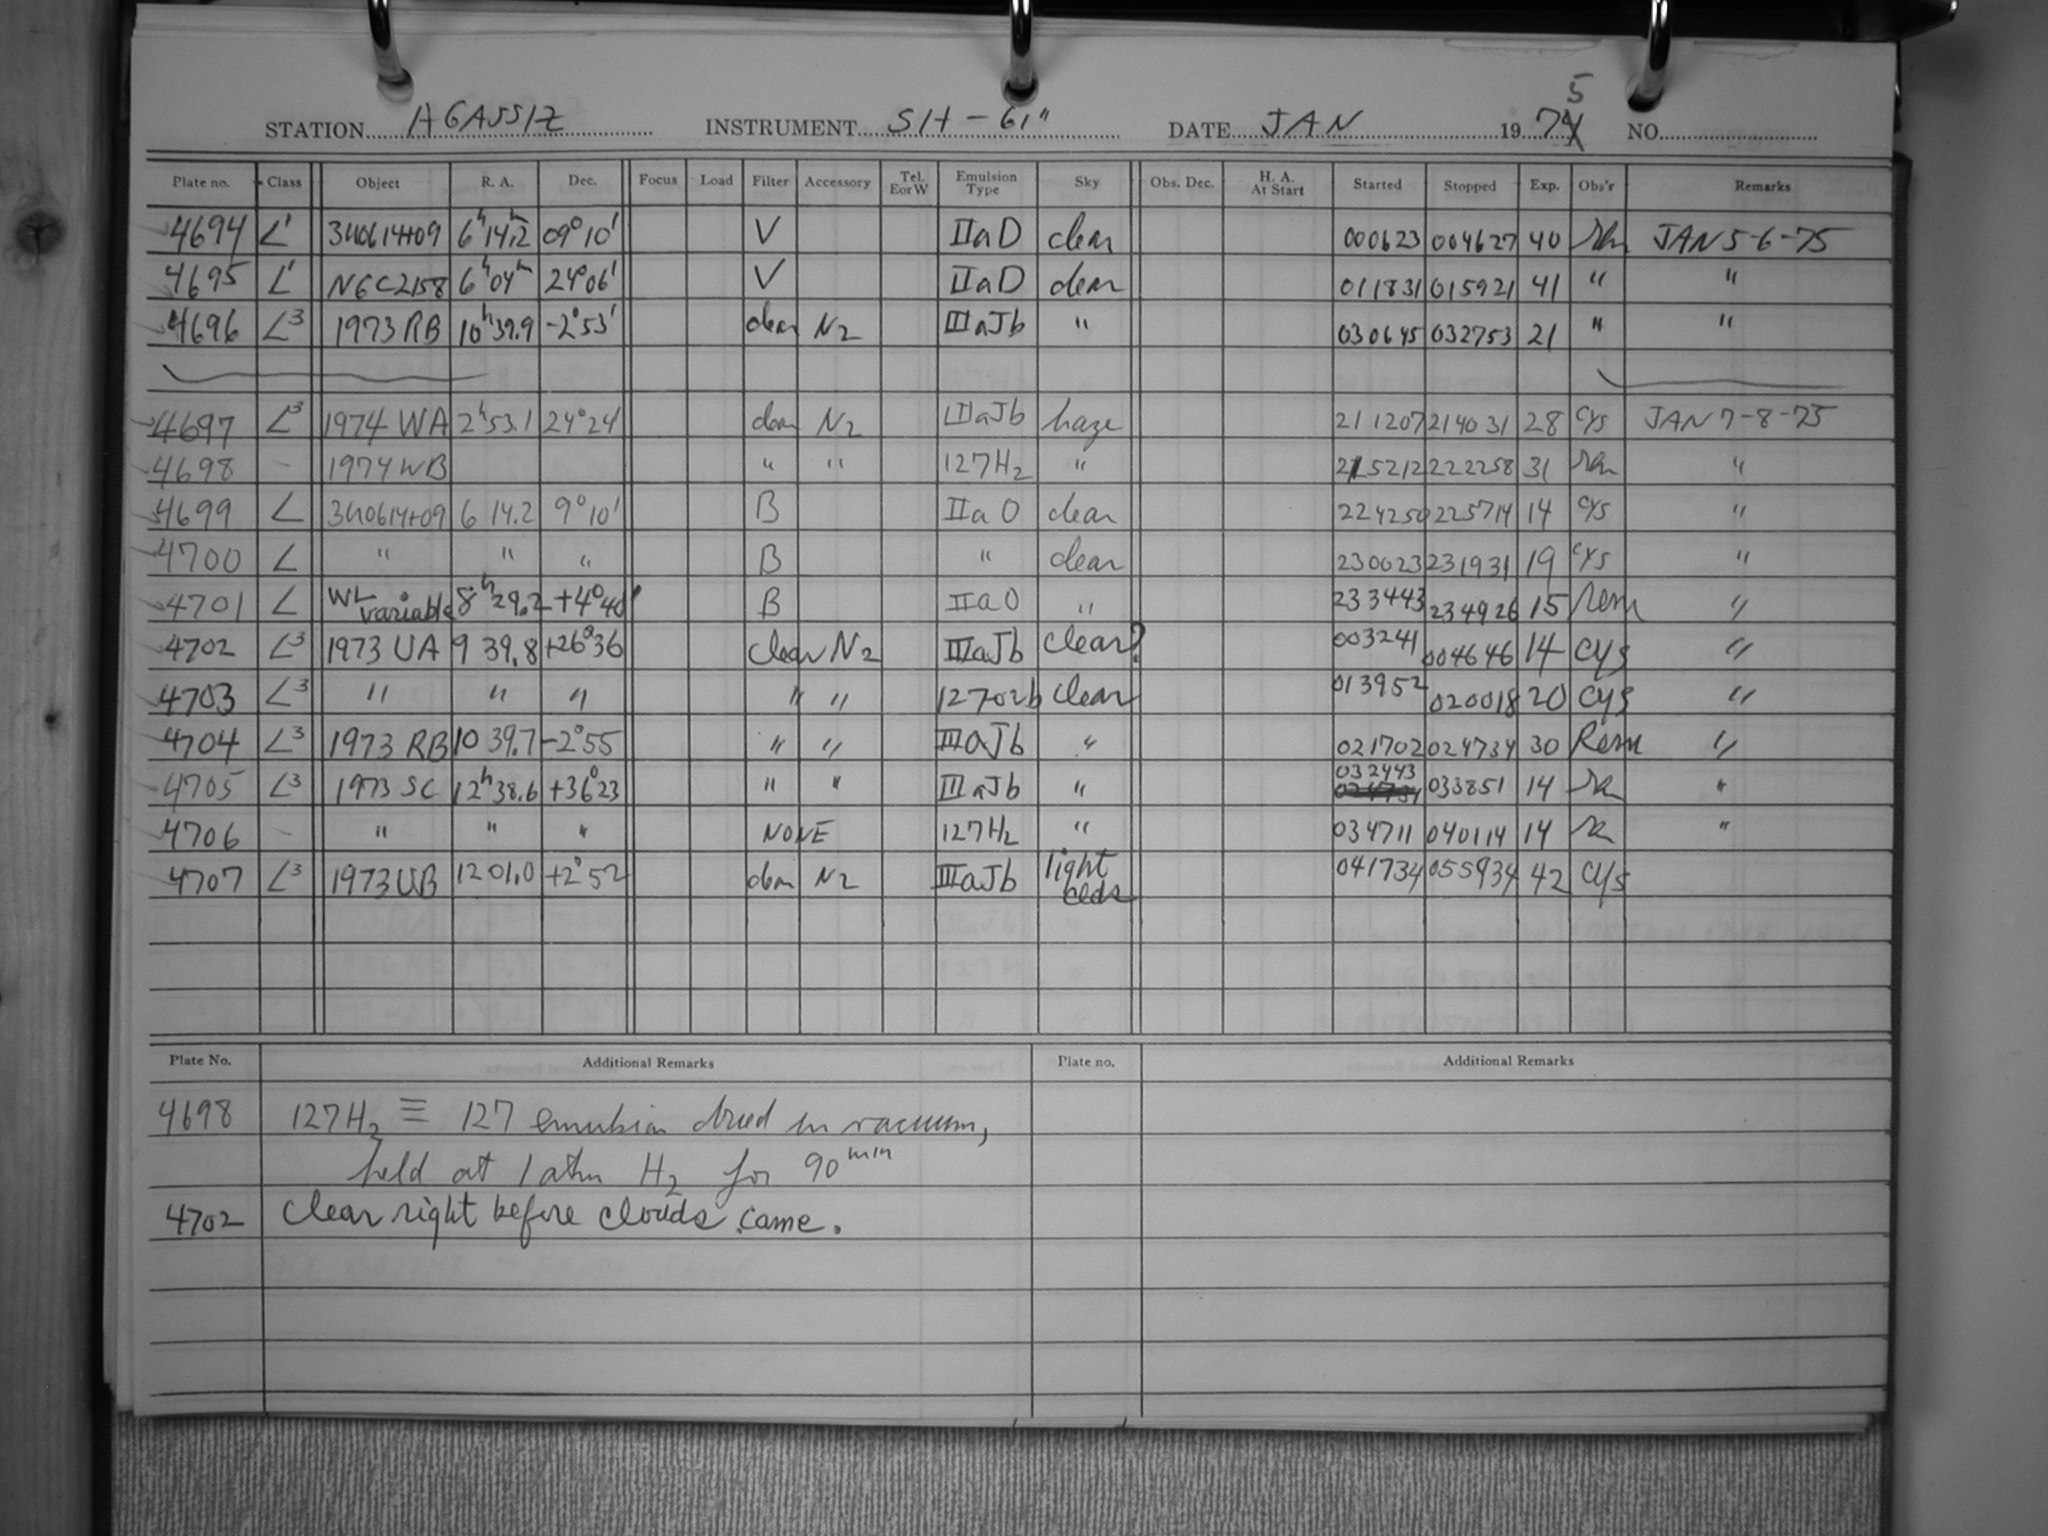 STATION AGASSIZ INSTRUMENT SH-61" DATE JAN 1975 NO.
Plate no. Class Object R. A. Dec. Focus Load Filter Accessory Tel. E or W Emulsion Type Sky Obs. Dec. H. A. At Start Started Stopped Exp. Obs'r Remarks
4694 L' 3U0614+09 6h14.2m 09°10' V IIaD clear 000623 004627 40 JAN 5-6-75
4695 L' NGC2158 6h04m 24°06' V IIaD clear 011831 015921 41 " "
4696 L3 1973 RB 10h39.9 -2°53' clear N2 IIIaJb " 030645 032753 21 " "
4697 L3 1974 WA 2h53.1 24°24' clear N2 IIIaJb haze 211207 214031 28 cys JAN 7-8-75
4698 - 1974 WB " " 127H2 " 215212 222258 31 "
4699 L 3U0614+09 6 14.2 9°10' B IIaO clear 224250 225714 14 cys "
4700 L " " " B " clear 230023 231931 19 cys "
4701 L WL variable 8h29.2 +4°40' B IIaO " 233443 234926 15 Rem "
4702 L3 1973 UA 9 39.8 +26°36 clear N2 IIIaJb clear? 003241 004646 14 cys "
4703 L3 " " " " " 12702b clear 013952 020018 20 cys "
4704 L3 1973 RB 10 39.7 -2°55 " " IIIaJb " 021702 024734 30 Rem "
4705 L3 1973 SC 12h38.6 +36°23 " " IIIaJb " 032443 033851 14 "
4706 - " " " NONE 127H2 " 034711 040114 14 "
4707 L3 1973 UB 12 01.0 +2°52 clear N2 IIIaJb light clds 041734 055934 42 cys
Plate No. Additional Remarks Plate no. Additional Remarks
4698 127H2 ≡ 127 emulsion dried in vacuum,
held at 1 atm H2 for 90min
4702 clear right before clouds came.